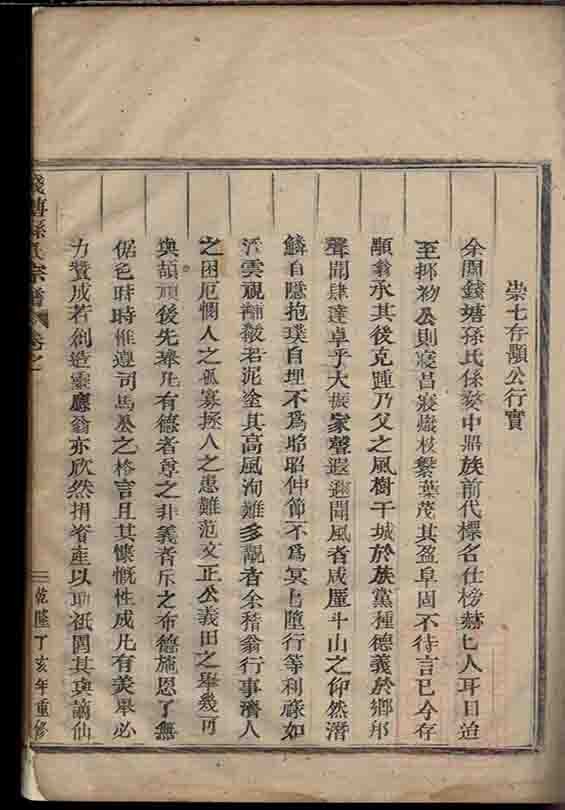 崇七存顯公行實
余閱錢塘孫氏係婺中鼎族前代標名仕榜赫匕人耳目迨
至揶初公則寢昌寢熾枝繁葉茂其盈阜固不待言已今存
顯翁承其後克踵乃父之風樹干城於族黨種德義於鄉邦
聲聞肆達卓乎大振家聲遐邇聞風者咸廑斗山之仰然潛
鱗自隱抱璞自埋不為昭昭仲節不為冥匕墮行等利祿如
浮雲視黼黻若泥塗其高風洵難多觀者余稽翁行事濟人
之困厄憫人之孤寡拯人之患難范文正公義田之舉幾可
與頡頏後先奉凡有德者尊之非義者斥之布德施恩了無
倨色時時惟遵司馬公之格言且其慷慨性成凡有美舉必
力贊成若創造靈應翁亦欣然捐資產以助祇園其與謫仙
錢塘孫氏宗譜 卷之
乾隆丁亥年重修